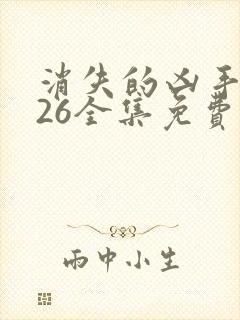 消失的凶手
26全集免費
雨中小生